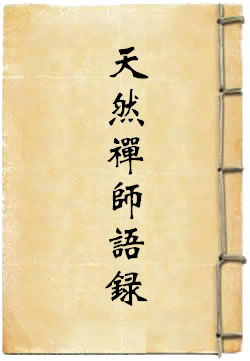 天然禪師語録